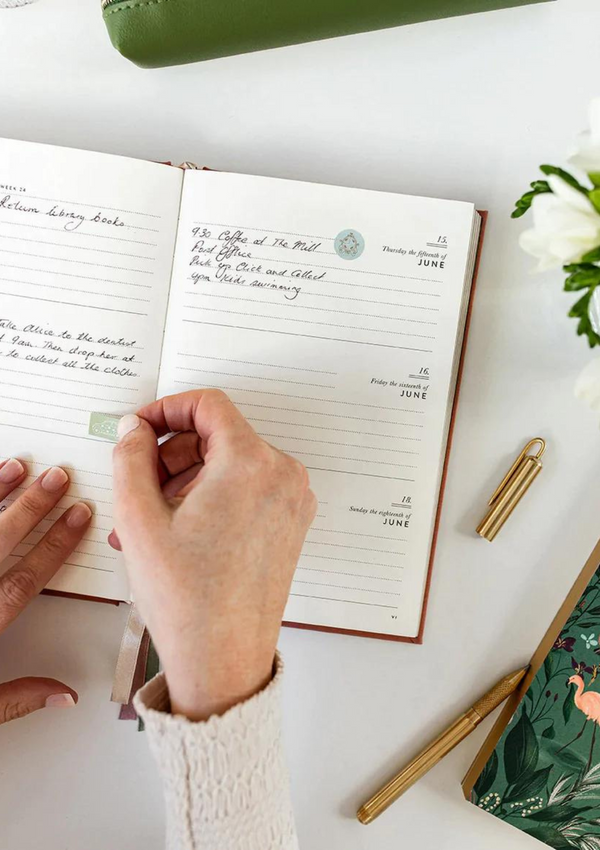 WEEK 24
Return library books.
Take Alice to the dentist
9am. Then drop her at
to collect all the clothes
15.
Thursday the fifteenth of
JUNE
9.30 Coffee at The Mill
Post Office
Pick up Click and Collect
4pm Kids swimming
16.
Friday the sixteenth of
JUNE
18.
Sunday the eighteenth of
JUNE